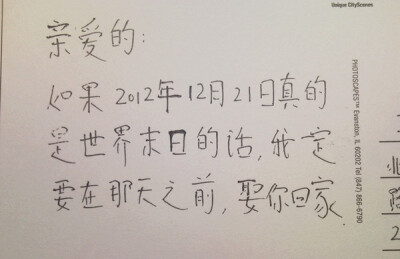 Unique CityScenes
亲爱的:
如果2012年12月21日真的
是世界末日的话,我定
要在那天之前,娶你回家.
PHOTOSCAPES™ Evanston, IL 60202 Tel (847) 866-6790
北
路
2